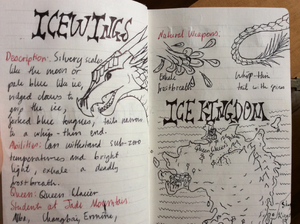 ICEWINGS
Description: Silvery scales
like the moon or
pale blue like ice,
ridged claws to
grip the ice,
forked blue tongues, tails narrow
to a whip-thin end.
Abilities: Can withstand sub-zero
temperatures and bright
light, exhale a deadly
frostbreath.
Queen: Queen Glacier
Students at Jade Mountain:
Winter, Changbai, Ermine,
Natural Weapons.
Exhale
frostbreath
Whip-thin
tail with spikes
ICE KINGDOM